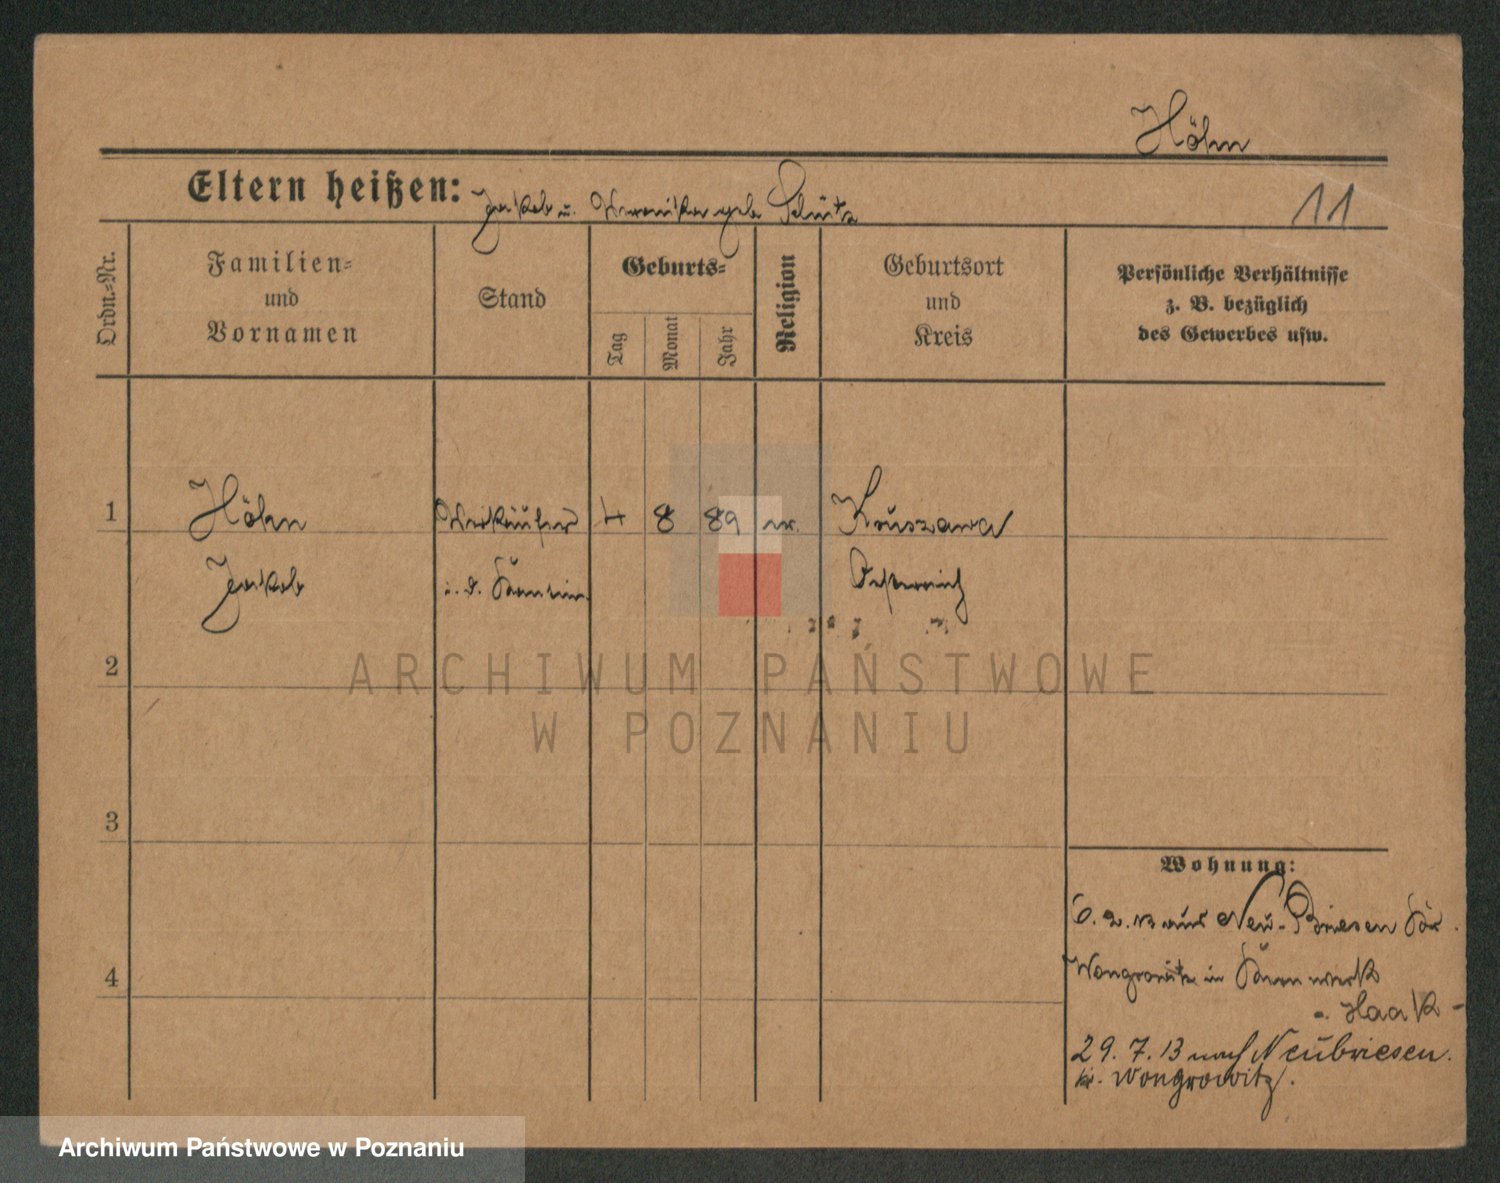 Höhn
Eltern heißen: Jakob u. Veronika geb. Schütz
11
Ordn.=Nr.
Familien=
und
Vornamen
Stand
Geburts=
Tag
Monat
Jahr
Religion
Geburtsort
und
Kreis
Persönliche Verhältnisse
z. B. bezüglich
des Gewerbes usw.
1
Höhn
Verkäufer
4
8
89
Kruszawa
Jakob
i. d.
Österreich
2
3
4
Wohnung:
6. 2. 13 aus Neu-Briesen
Wongrowitz in
Haak
29. 7. 13 nach Neubriesen.
Kr. Wongrowitz.
ARCHIWUM PAŃSTWOWE
W POZNANIU
Archiwum Państwowe w Poznaniu